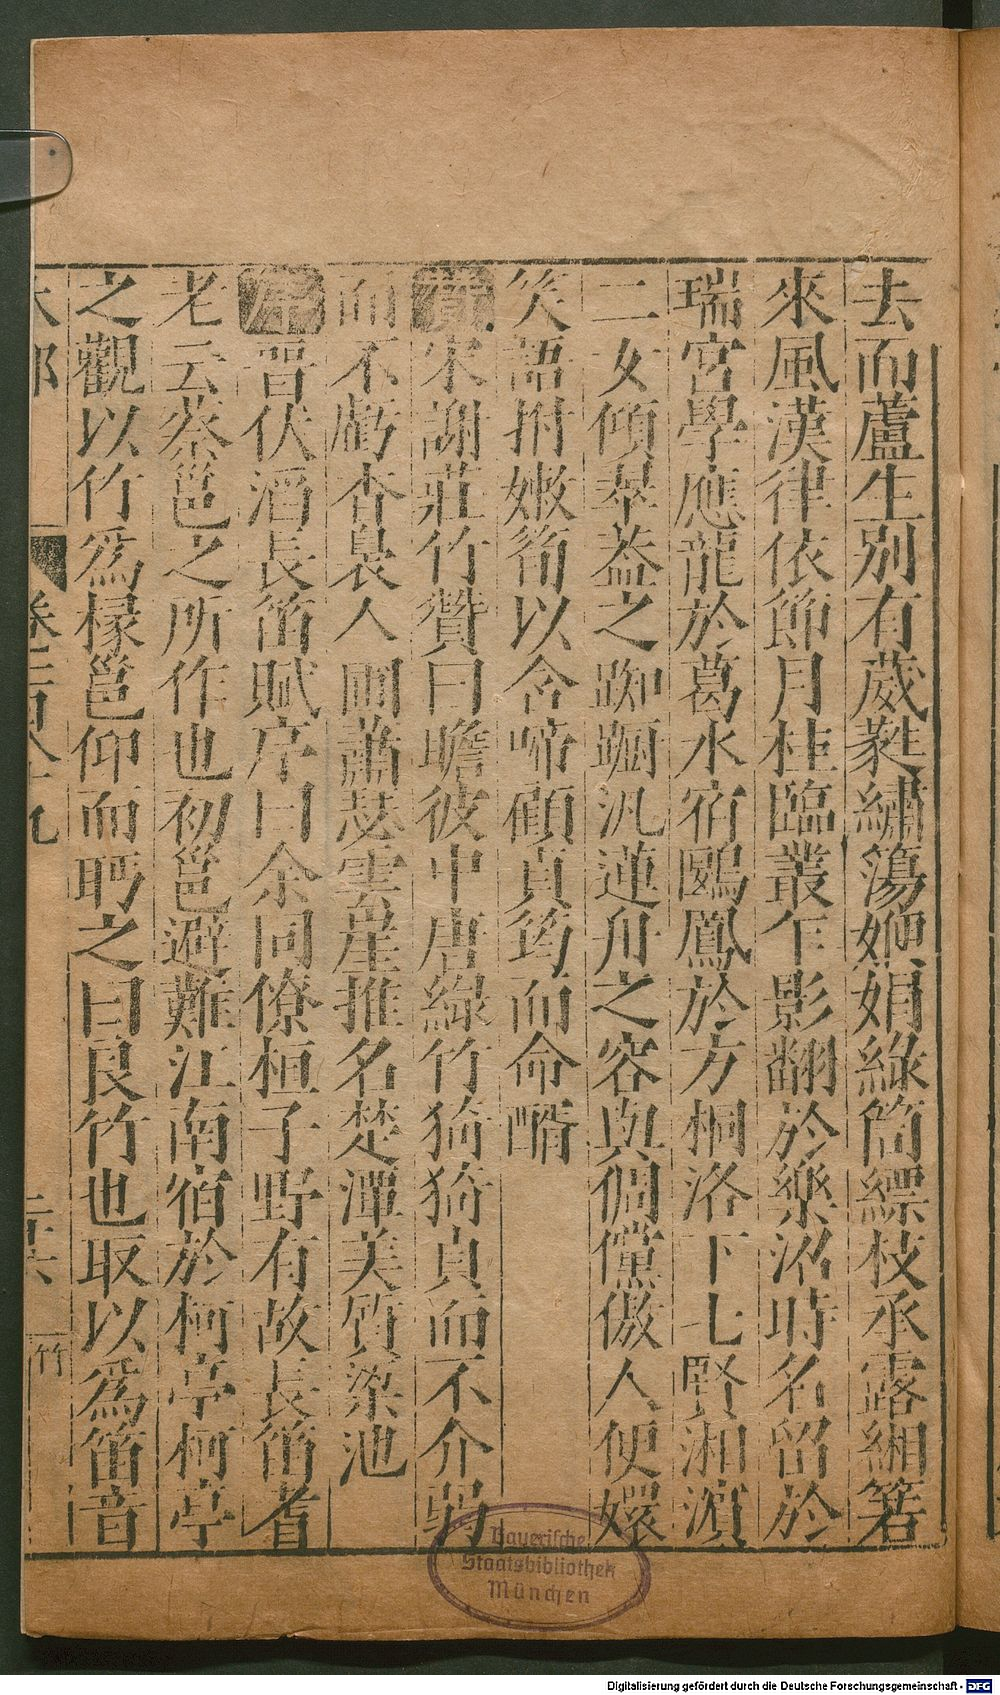 去而蘆生別有葳蕤繡簜㛹娟綠筒縹枝承露緗箬
來風漢律依節月桂臨叢乍影翻於樂沼時名留於
瑞宮學應龍於葛水宿鷗鳳於方桐洛下七賢湘濵
二女傾翠蓋之踟躕汎蓮舟之容與倜儻傲人便嬛
笑語拊嫰筍以含啼顧貞筠而命醑
賛宋謝莊竹贊曰瞻彼中唐綠竹猗猗貞而不介弱
而不虧杏裊人圃蕭瑟雲崖推名楚潭美質梁池
序晉伏滔長笛賦序曰余同僚桓子野有故長笛者
老云蔡邕之所作也初邕避難江南宿於柯亭柯亭
之觀以竹爲椽邕仰而眄之曰良竹也取以爲笛音
木部 卷三百八十九 二十六 竹
Bayerische
Staatsbibliothek
München
Digitalisierung gefördert durch die Deutsche Forschungsgemeinschaft - DFG